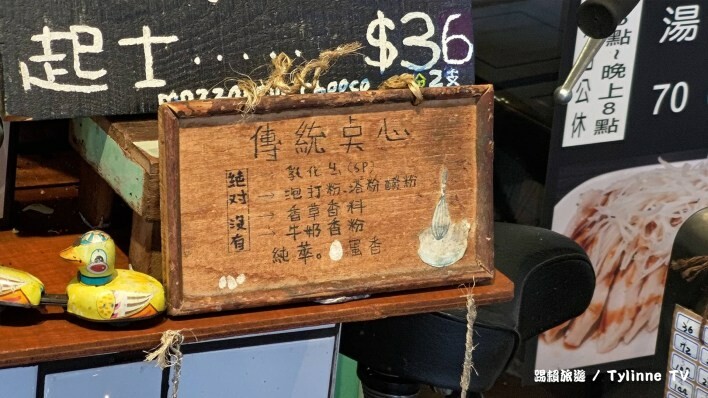 起士...... $36
mozzarella cheese 2支
傳統点心
絕对沒有
乳化剂(SP)
→ 泡打粉、澎粉
→ 香草香料
牛奶香粉
純華。蛋香
點~晚上8點
公休
湯
70
36
72
踢賴旅遊 / Tylinne TV